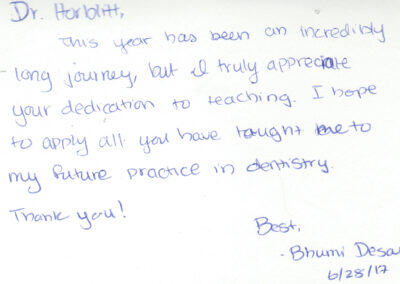 Dr. Horblitt,
This year has been an incredibly
long journey, but I truly appreciate
your dedication to teaching. I hope
to apply all you have taught me to
my future practice in dentistry.
Thank you!
Best,
- Bhumi Desa
6/28/17